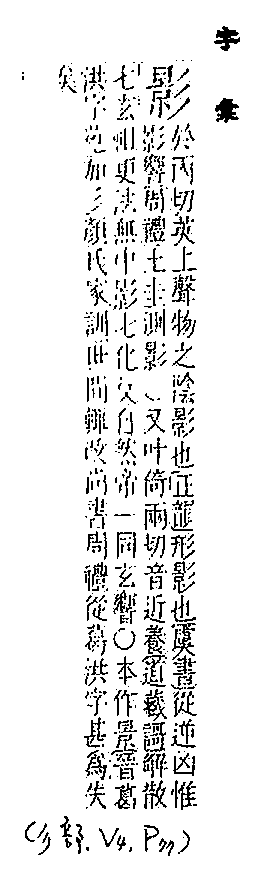 字彙
影 於丙切英上聲物之陰影也正韻形影也虞書從逆凶惟
影響周禮土圭測影 又叶倚兩切音近養道藏謌解散
七玄祖更無中影七化自然帝一同玄響〇本作景晉葛
洪字苑加彡顏氏家訓世間輒改尚書周禮從葛洪字甚為失
矣
(彡部. V4, P77)